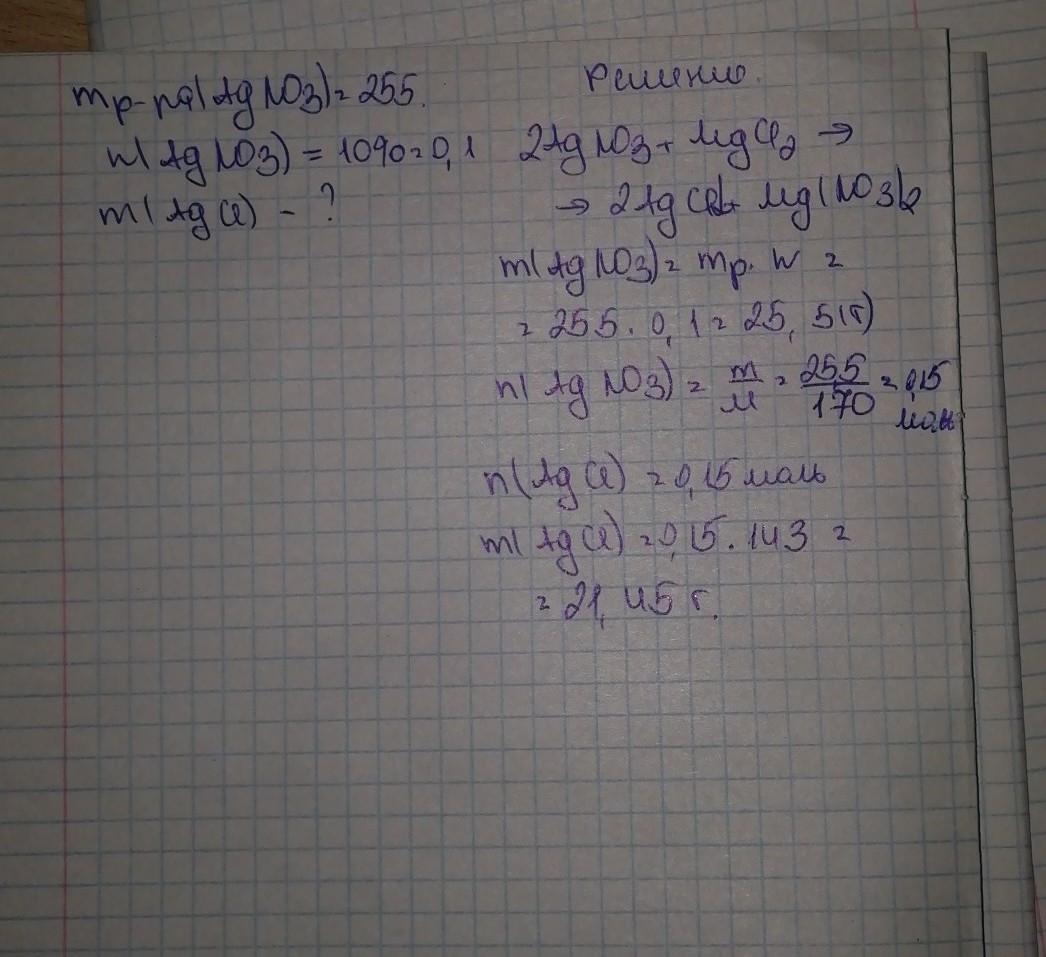 mр-ра(AgNO3)=255.
w(AgNO3)=10%=0,1
m(AgCl) - ?
Решение.
2AgNO3+MgCl2→
→2AgCl↓+Mg(NO3)2
m(AgNO3)=mр·w=
=255·0,1=25,5(г)
n(AgNO3)=m/M=25,5/170=0,15 моль
n(AgCl)=0,15моль
m(AgCl)=0,15·143=
=21,45г.